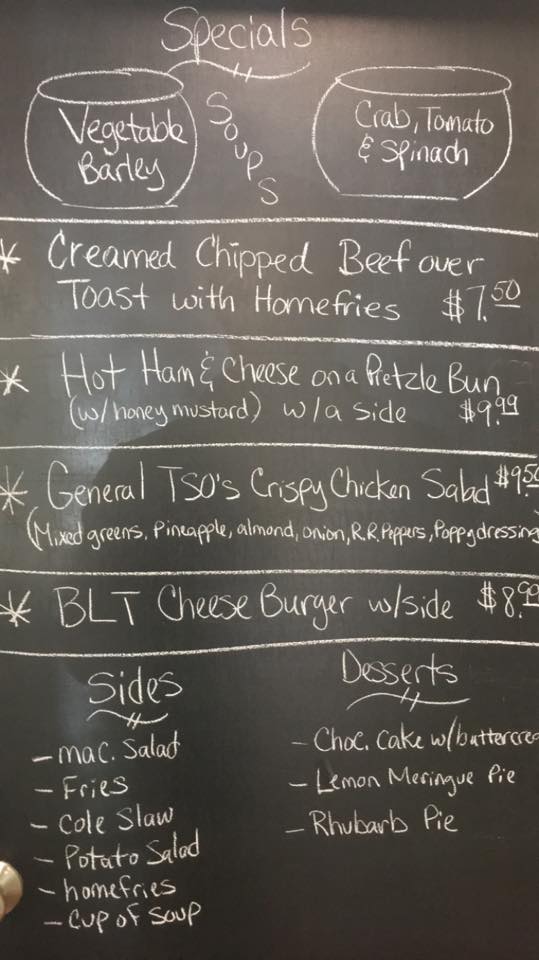 Specials
Vegetable
Barley
Soups
Crab, Tomato
& Spinach
* Creamed Chipped Beef over
Toast with Homefries $7.50
* Hot Ham & Cheese on a Pretzle Bun
(w/honey mustard) w/a side $9.99
* General TSO's Crispy Chicken Salad $9.50
(Mixed greens, Pineapple, almond, onion, R.R. Peppers, Poppy dressing
* BLT Cheese Burger w/side $8.99
Sides
- mac. Salad
- Fries
- Cole Slaw
- Potato Salad
- homefries
- Cup of soup
Desserts
- Choc. Cake w/buttercrea
- Lemon Meringue Pie
- Rhubarb Pie